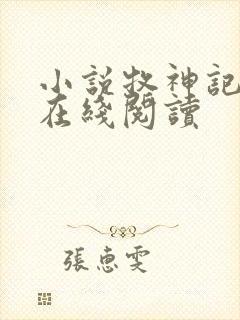 小說牧神記
在綫閱讀
張惠雯